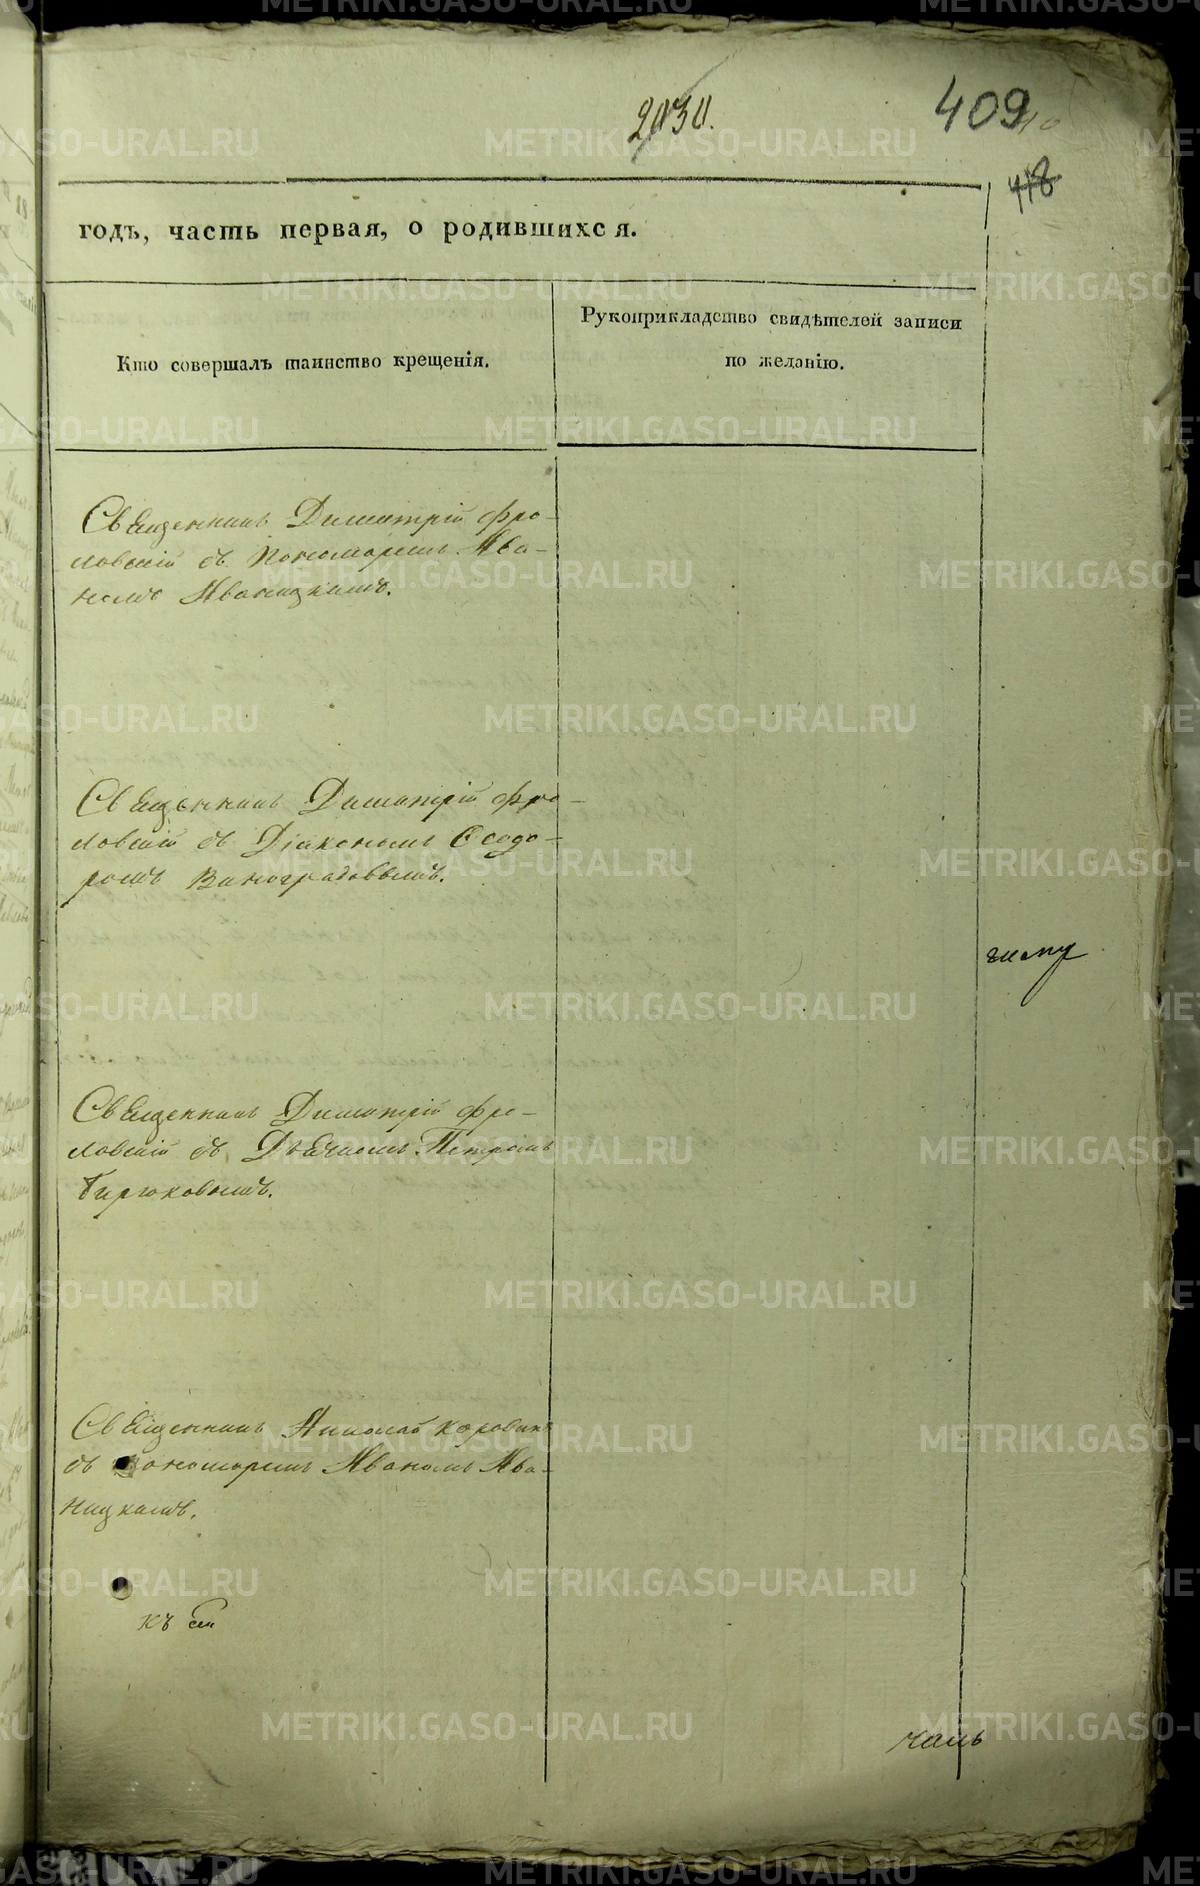 2030.
409
418
годъ, часть первая, о родившихся.
Кто совершалъ таинство крещенія.
Рукоприкладство свидѣтелей записи
по желанію.
Священникъ Димитрій Фро-
ловскій съ Пономаремъ Ива-
номъ Иваницкимъ.
Священникъ Димитрій Фро-
ловскій съ Діакономъ Ѳеодо-
ромъ Виноградовымъ.
Священникъ Димитрій Фро-
ловскій съ Дьячкомъ Петромъ
Бирюковымъ.
Священникъ Николай Коровинъ
съ Пономаремъ Иваномъ Ива-
ницкимъ.
къ сей
METRIKI.GASO-URAL.RU